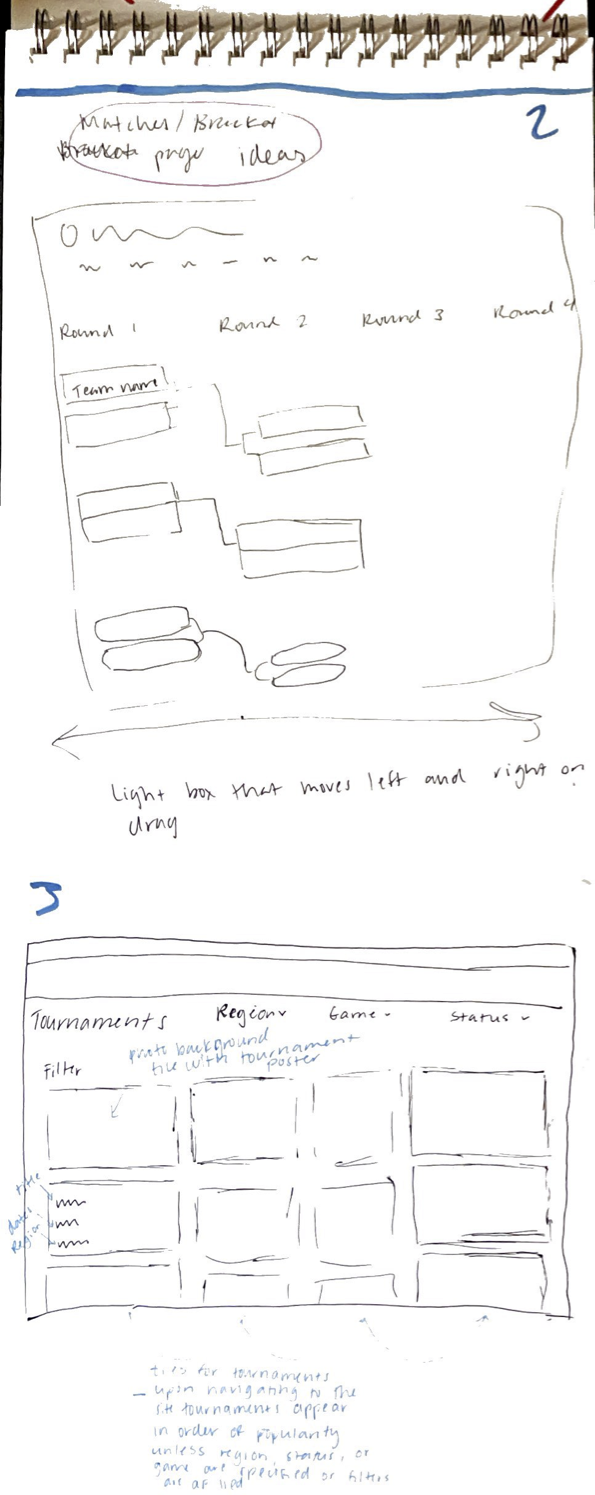 2
Matches / Bracket
page ideas
Round 1 Round 2 Round 3 Round 4
Team name
Light box that moves left and right on
drag
3
Tournaments Region Game Status
photo background
tile with tournament
poster
Filter
title
dates
Region
tiles for tournaments
– upon navigating to the
site tournaments appear
in order of popularity
unless region, status, or
game are specified or filters
are